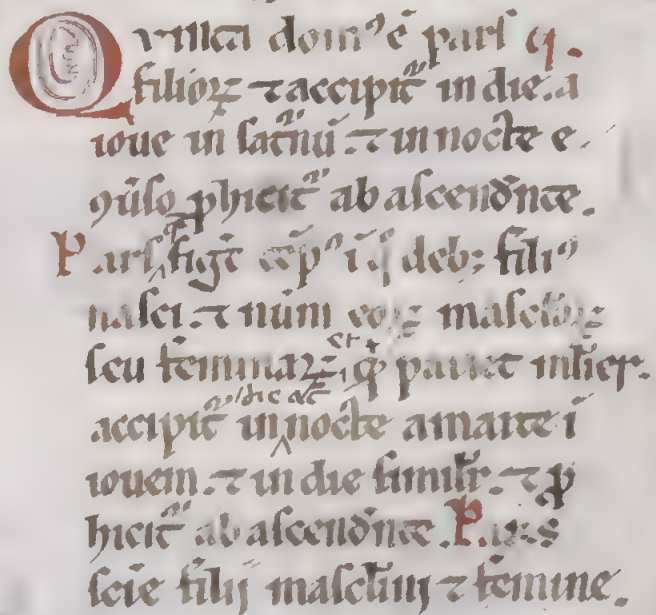 Quinta dom⁹ ē pars q̄.
filioꝝ ⁊ accipit᷑ in die. a
ioue in sat᷑nū. ⁊ in nocte e
ꝯũso ꝓhicit᷑ ab ascendñte.
Pars fig̃t iꝰ deb; fili⁹
nasci. ⁊ num̃ eoꝝ masclõꝝ
seu feminaꝝ et qͥ pariet ml̃ier.
accipit᷑ in die ac nocte a marte ī
iouem. ⁊ in die simil̃r. ⁊ ꝓ
hicit᷑ ab ascendñte. Pars
scīe filij masclinj ⁊ femine.